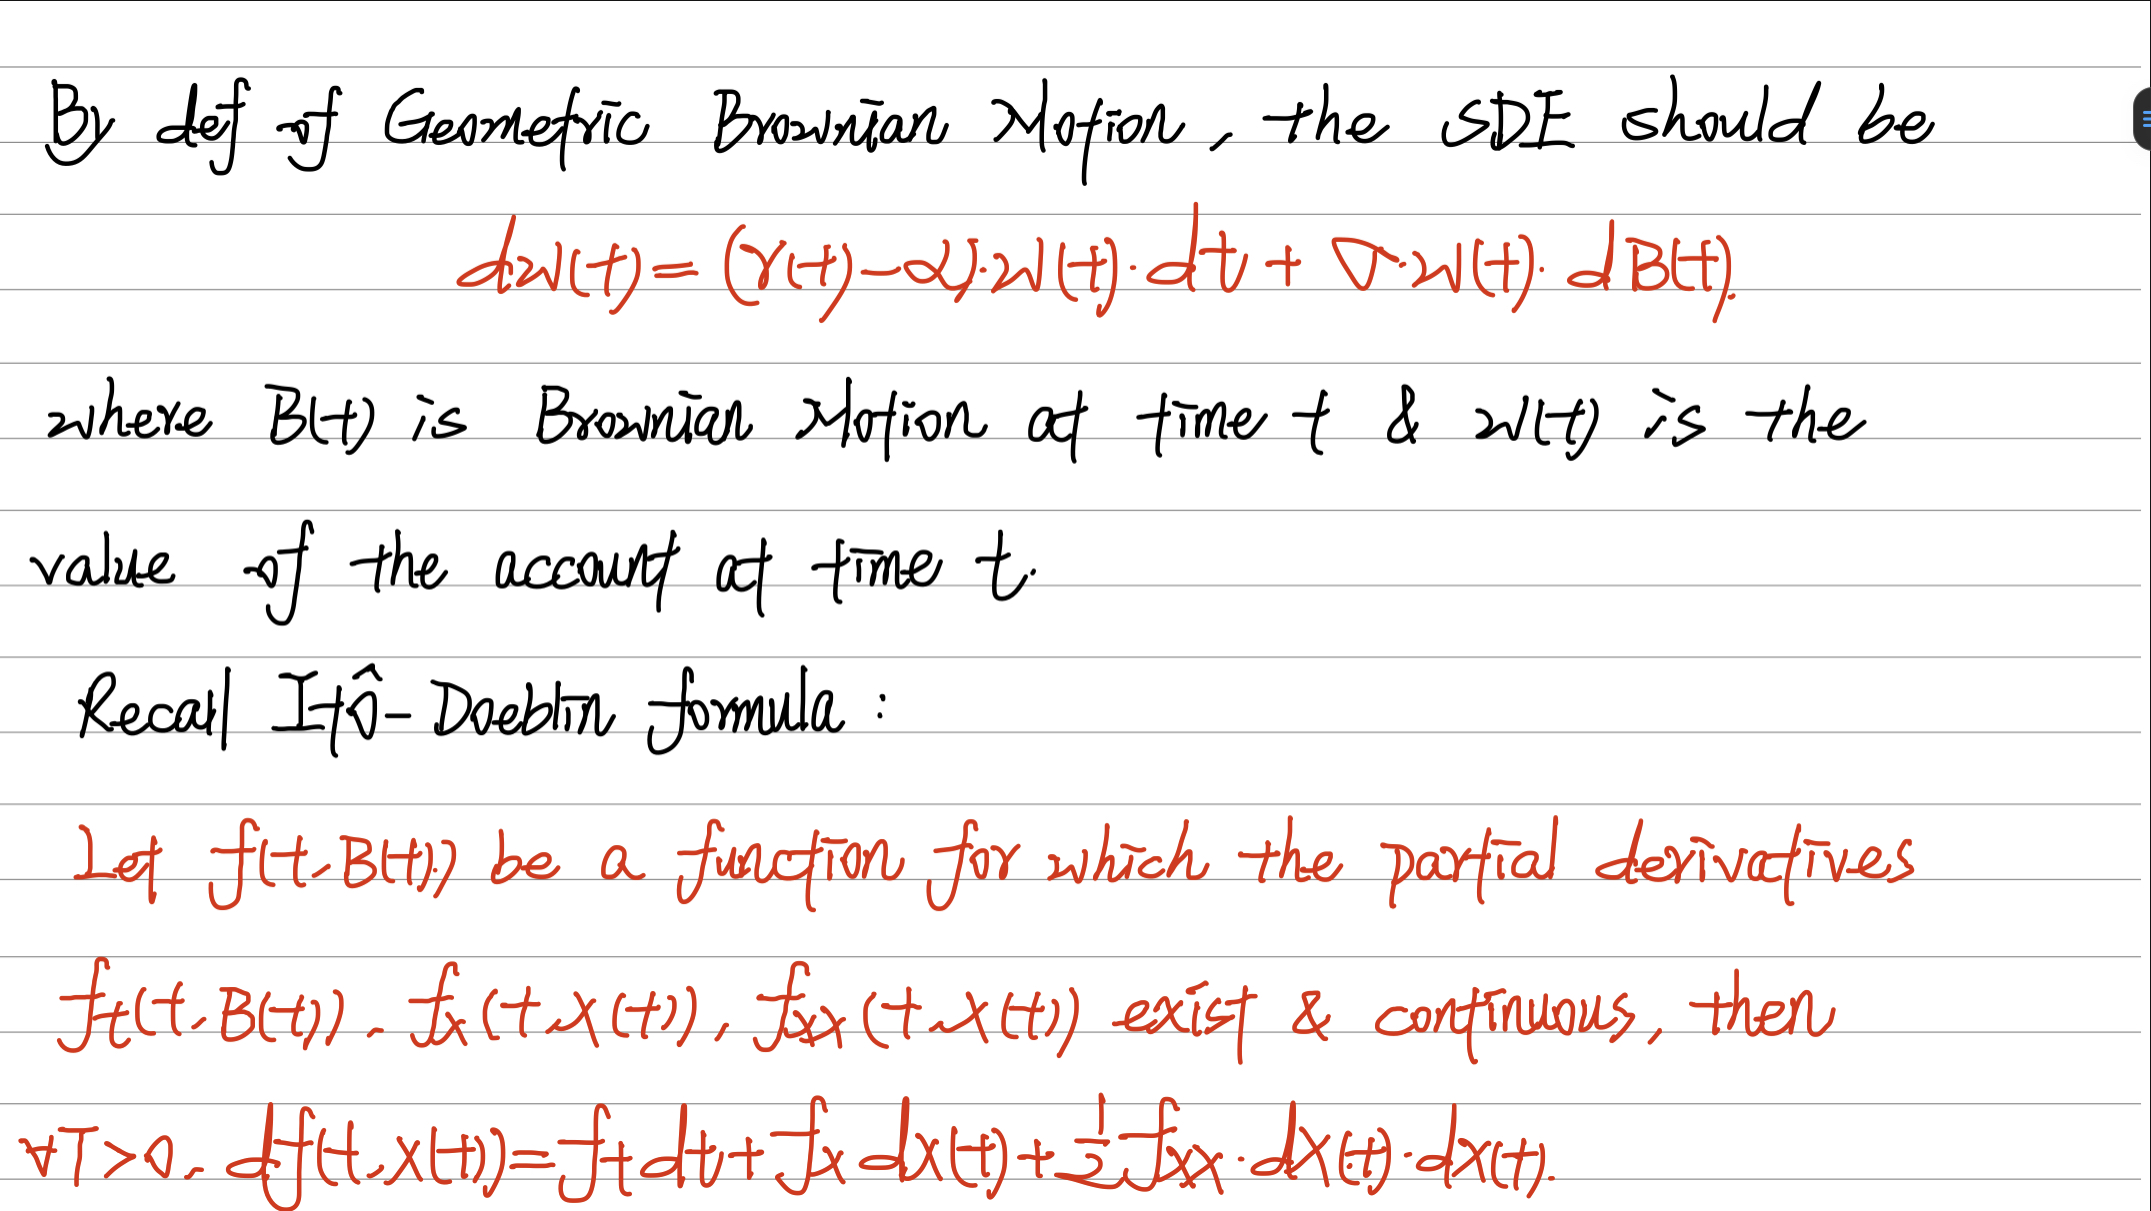 By def of Geometric Brownian Motion, the SDE should be
dW(t) = (r(t)-α)·W(t)·dt + σ·W(t)·dB(t).
where B(t) is Brownian Motion at time t & W(t) is the
value of the account at time t.
Recall Itô-Doeblin formula:
Let f(t,B(t)) be a function for which the partial derivatives
f_t(t,B(t)), f_x(t,X(t)), f_xx(t,X(t)) exist & continuous, then
∀T>0, df(t,X(t)) = f_t dt + f_x dX(t) + 1/2 f_xx·dX(t)·dX(t).